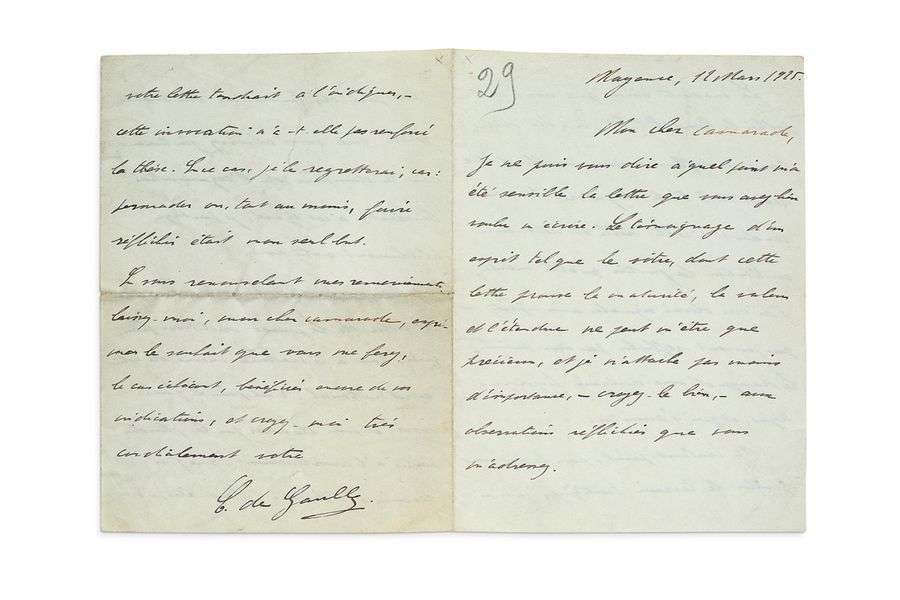 29
Mayence, 12 Mars 1925.
Mon cher camarade,
Je ne puis vous dire à quel point m'a
été sensible la lettre que vous avez bien
voulu m'écrire. Le témoignage d'un
esprit tel que le vôtre, dont cette
lettre prouve la maturité, la valeur
et l'étendue ne peut m'être que
précieux, et je n'attache pas moins
d'importance, – croyez-le bien, – aux
observations réfléchies que vous
m'adressez.
votre lettre tendrait à l'indiquer, –
cette invocation n'a-t-elle pas renforcé
la thèse. En ce cas, je le regretterai, car :
persuader ou, tout au moins, faire
réfléchir était mon seul but.
En vous renouvelant mes remerciements,
laissez-moi, mon cher camarade, expri-
mer le souhait que vous me ferez,
le cas échéant, bénéficier encore de vos
indications, et croyez-moi très
cordialement vôtre
C. de Gaulle.